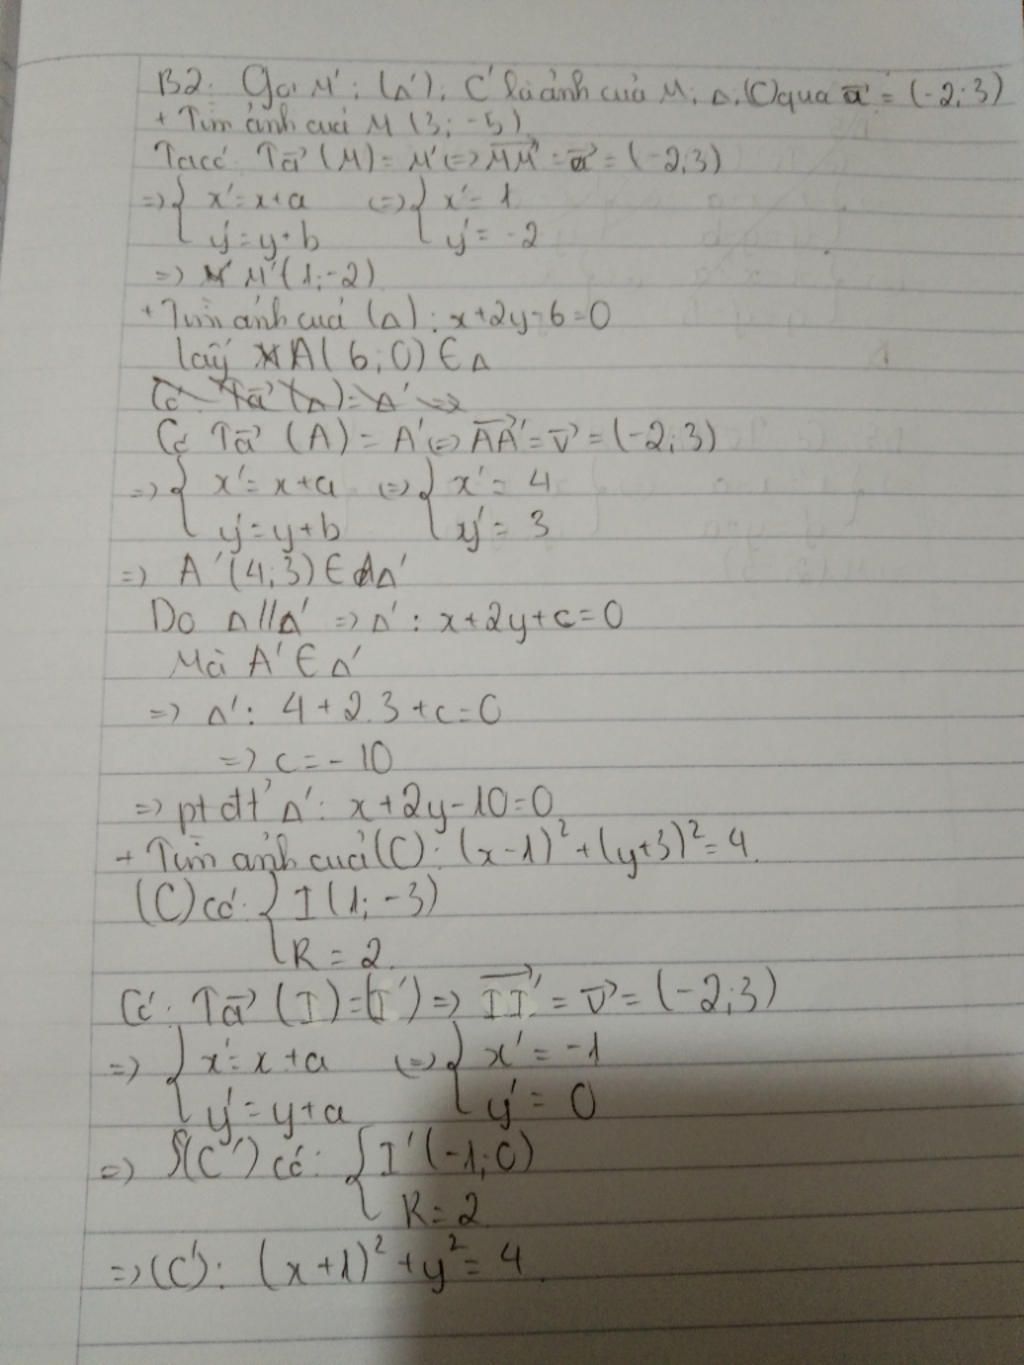 B2: Gọi M'; (Δ'); C' là ảnh của M, Δ, (C) qua a⃗ = (-2;3)
+ Tìm ảnh của M (3; -5)
Ta có: Ta⃗ (M) = M' <=> MM'⃗ = a⃗ = (-2;3)
=> { x' = x+a <=> { x' = 1
y' = y+b y' = -2
=> M'(1;-2)
+ Tìm ảnh của (Δ): x+2y-6=0
lấy A(6;0) ∈ Δ
Có: Ta⃗ (Δ) = Δ' =>
Có Ta⃗ (A) = A' <=> AA'⃗ = v⃗ = (-2;3)
=> { x' = x+a <=> { x' = 4
y' = y+b y' = 3
=> A'(4;3) ∈ Δ'
Do Δ//Δ' => Δ': x+2y+c=0
Mà A' ∈ Δ'
=> Δ': 4+2.3+c=0
=> c = -10
=> ptđt' Δ': x+2y-10=0
+ Tìm ảnh của (C): (x-1)² + (y+3)² = 4.
(C) có: { I (1; -3)
R = 2.
Có: Ta⃗ (I) = (I') => II'⃗ = v⃗ = (-2;3)
=> { x' = x+a <=> { x' = -1
y' = y+a y' = 0
=> (C') có: { I'(-1;0)
R = 2
=> (C'): (x+1)² + y² = 4.